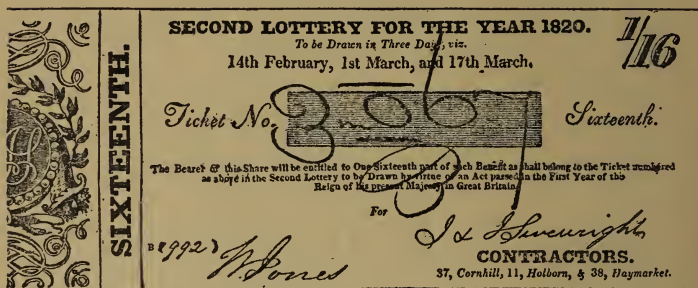 SECOND LOTTERY FOR THE YEAR 1820.
1/16
To be Drawn in Three Days, viz.
14th February, 1st March, and 17th March.
SIXTEENTH.
Ticket No.
Sixteenth.
The Bearer of this Share will be entitled to One Sixteenth part of such Benefit as shall belong to the Ticket numbered
as above in the Second Lottery to be Drawn by virtue of an Act passed in the First Year of the
Reign of his present Majesty in Great Britain.
For
J & J Sivewright
W. Jones
CONTRACTORS.
37, Cornhill, 11, Holborn, & 38, Haymarket.